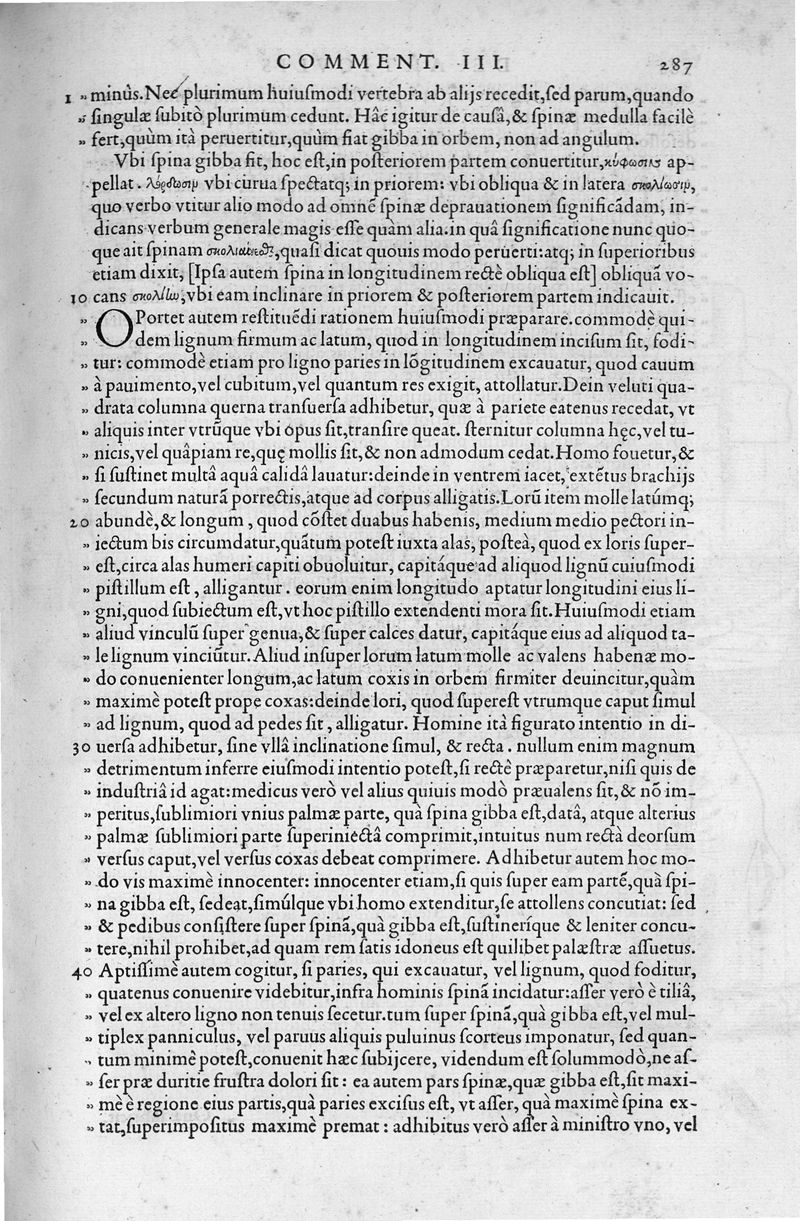 COMMENT. III. 287
1 „ minùs. Nec plurimum huiuſmodi vertebra ab alijs recedit, ſed parum, quando
„ ſingulæ ſubitò plurimum cedunt. Hâc igitur de cauſâ, & ſpinæ medulla facilè
„ fert, quùm ità peruertitur, quùm fiat gibba in orbem, non ad angulum.
Vbi ſpina gibba fit, hoc eſt, in poſteriorem partem conuertitur, κύφωσιν ap-
pellat. λόρδωσιν vbi curua ſpectatq; in priorem: vbi obliqua & in latera σκολίωσιν,
quo verbo vtitur alio modo ad omnẽ ſpinæ deprauationem ſignificãdam, in-
dicans verbum generale magis eſſe quàm alia. in quâ ſignificatione nunc quo-
que ait ſpinam , quaſi dicat quouis modo peruerti: atq; in ſuperioribus
etiam dixit, [Ipſa autem ſpina in longitudinem rectè obliqua eſt] obliquã vo-
10 cans , vbi eam inclinare in priorem & poſteriorem partem indicauit.
„ OPortet autem reſtituẽdi rationem huiuſmodi præparare. commodè qui-
„ dem lignum firmum ac latum, quod in longitudinem inciſum ſit, fodi-
„ tur: commodè etiam pro ligno paries in lõgitudinem excauatur, quod cauum
„ à pauimento, vel cubitum, vel quantum res exigit, attollatur. Dein veluti qua-
„ drata columna querna tranſuerſa adhibetur, quæ à pariete eatenus recedat, vt
„ aliquis inter vtrũque vbi opus ſit, tranſire queat. ſternitur columna hęc, vel tu-
„ nicis, vel quâpiam re, quę mollis ſit, & non admodum cedat. Homo fouetur, &
„ ſi ſuſtinet multâ aquâ calidâ lauatur: deinde in ventrem iacet, extẽtus brachijs
„ ſecundum naturã porrectis, atque ad corpus alligatis. Lorũ item molle latúmq;
20 abundè, & longum, quod cõſtet duabus habenis, medium medio pectori in-
„ iectum bis circumdatur, quãtum poteſt iuxta alas, poſteà, quod ex loris ſuper-
„ eſt, circa alas humeri capiti obuoluitur, capitáque ad aliquod lignũ cuiuſmodi
„ piſtillum eſt, alligantur. eorum enim longitudo aptatur longitudini eius li-
„ gni, quod ſubiectum eſt, vt hoc piſtillo extendenti mora ſit. Huiuſmodi etiam
„ aliud vinculũ ſuper genua, & ſuper calces datur, capitáque eius ad aliquod ta-
„ le lignum vinciũtur. Aliud inſuper lorum latum molle ac valens habenæ mo-
„ do conuenienter longum, ac latum coxis in orbem firmiter deuincitur, quàm
„ maximè poteſt prope coxas: deinde lori, quod ſupereſt vtrumque caput ſimul
„ ad lignum, quod ad pedes ſit, alligatur. Homine ità figurato intentio in di-
30 uerſa adhibetur, ſine vllâ inclinatione ſimul, & recta. nullum enim magnum
„ detrimentum inferre eiuſmodi intentio poteſt, ſi rectè præparetur, niſi quis de
„ induſtriâ id agat: medicus verò vel alius quiuis modò præualens ſit, & nõ im-
„ peritus, ſublimiori vnius palmæ parte, quà ſpina gibba eſt, datâ, atque alterius
„ palmæ ſublimiori parte ſuperiniectâ comprimit, intuitus num rectà deorſum
„ verſus caput, vel verſus coxas debeat comprimere. Adhibetur autem hoc mo-
„ do vis maximè innocenter: innocenter etiam, ſi quis ſuper eam partẽ, quà ſpi-
„ na gibba eſt, ſedeat, ſimúlque vbi homo extenditur, ſe attollens concutiat: ſed
„ & pedibus conſiſtere ſuper ſpinã, quà gibba eſt, ſuſtineríque & leniter concu-
„ tere, nihil prohibet, ad quam rem ſatis idoneus eſt quilibet palæſtræ aſſuetus.
40 Aptiſſimè autem cogitur, ſi paries, qui excauatur, vel lignum, quod foditur,
„ quatenus conuenire videbitur, infra hominis ſpinã incidatur: aſſer verò è tiliâ,
„ vel ex altero ligno non tenuis ſecetur. tum ſuper ſpinã, quà gibba eſt, vel mul-
„ tiplex panniculus, vel paruus aliquis puluinus ſcorteus imponatur, ſed quan-
„ tum minimè poteſt, conuenit hæc ſubijcere, videndum eſt ſolummodò, ne aſ-
„ ſer præ duritie fruſtra dolori ſit: ea autem pars ſpinæ, quæ gibba eſt, ſit maxi-
„ mè è regione eius partis, quà paries exciſus eſt, vt aſſer, quà maximè ſpina ex-
„ tat, ſuperimpoſitus maximè premat: adhibitus verò aſſer à miniſtro vno, vel